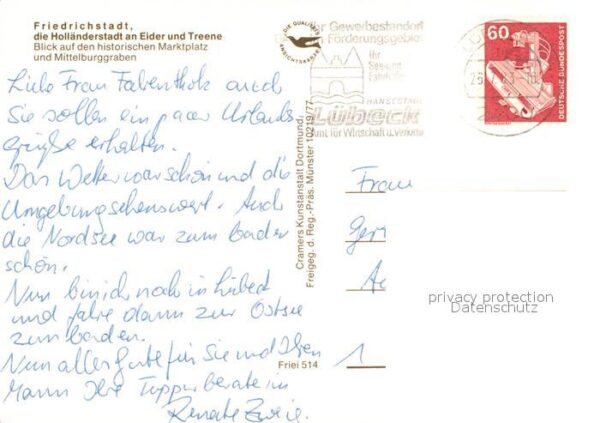 Friedrichstadt,
die Holländerstadt an Eider und Treene
Blick auf den historischen Marktplatz
und Mittelburggraben
Liebe Frau Fabentholz auch
Sie sollen ein paar Urlaubs
grüße erhalten.
Das Wetter war schön und die
Umgebung sehenswert. Auch
die Nordsee war zum baden
schön.
Nun bin ich noch in Lübeck
und fahre dann zur Ostsee
zum baden.
Nun alles gute für Sie und Ihren
Mann Ihre Tupperberaterin
Renate
DIE QUALITÄTS
ANSICHTSKARTE
Cramers Kunstanstalt Dortmund,
Freigeg. d. Reg.-Präs. Münster 10219/77
Friei 514
Gewerbestandort
Förderungsgebiet
Ihr
HANSESTADT
Lübeck
Amt für Wirtschaft u. Verkehr
60
DEUTSCHE BUNDESPOST
Frau
1
privacy protection
Datenschutz